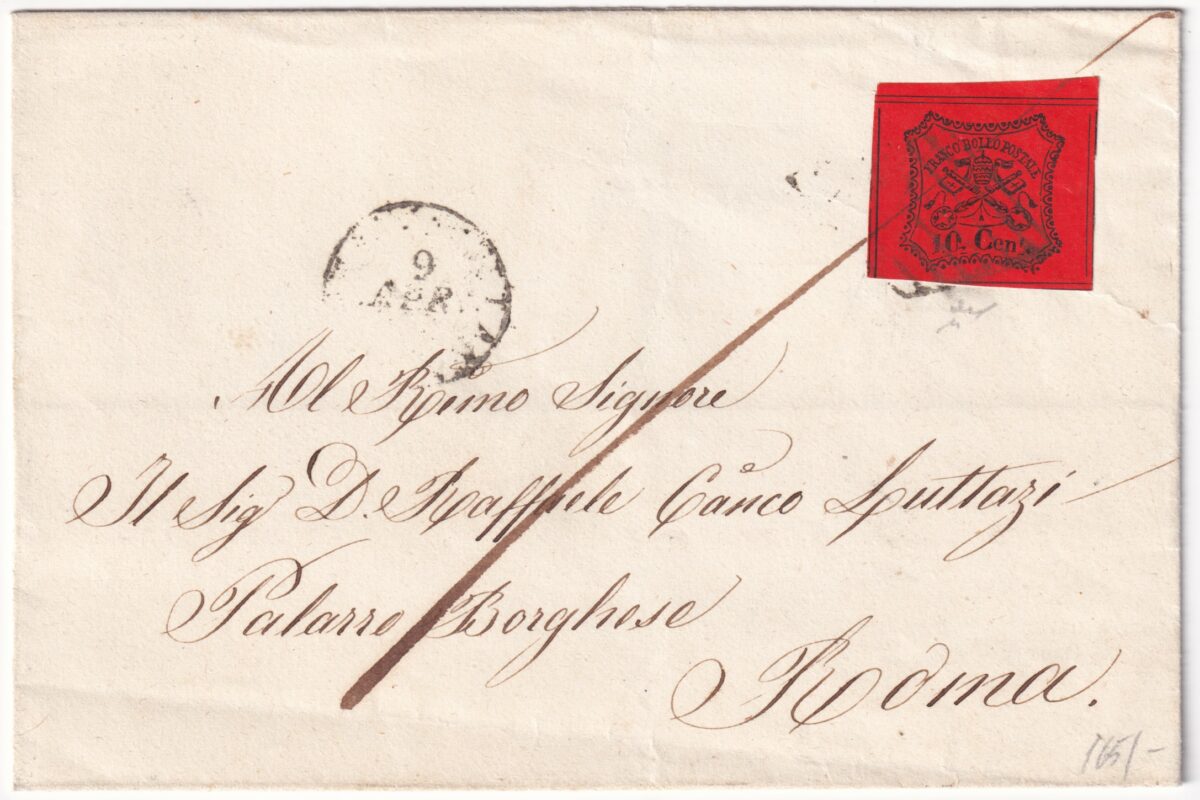 FRANCO BOLLO POSTALE
10. Cent
9
APR
Al Rmo Signore
Il Sig D. Raffaele Canco Luttazi
Palazzo Borghese
Roma.
165/-